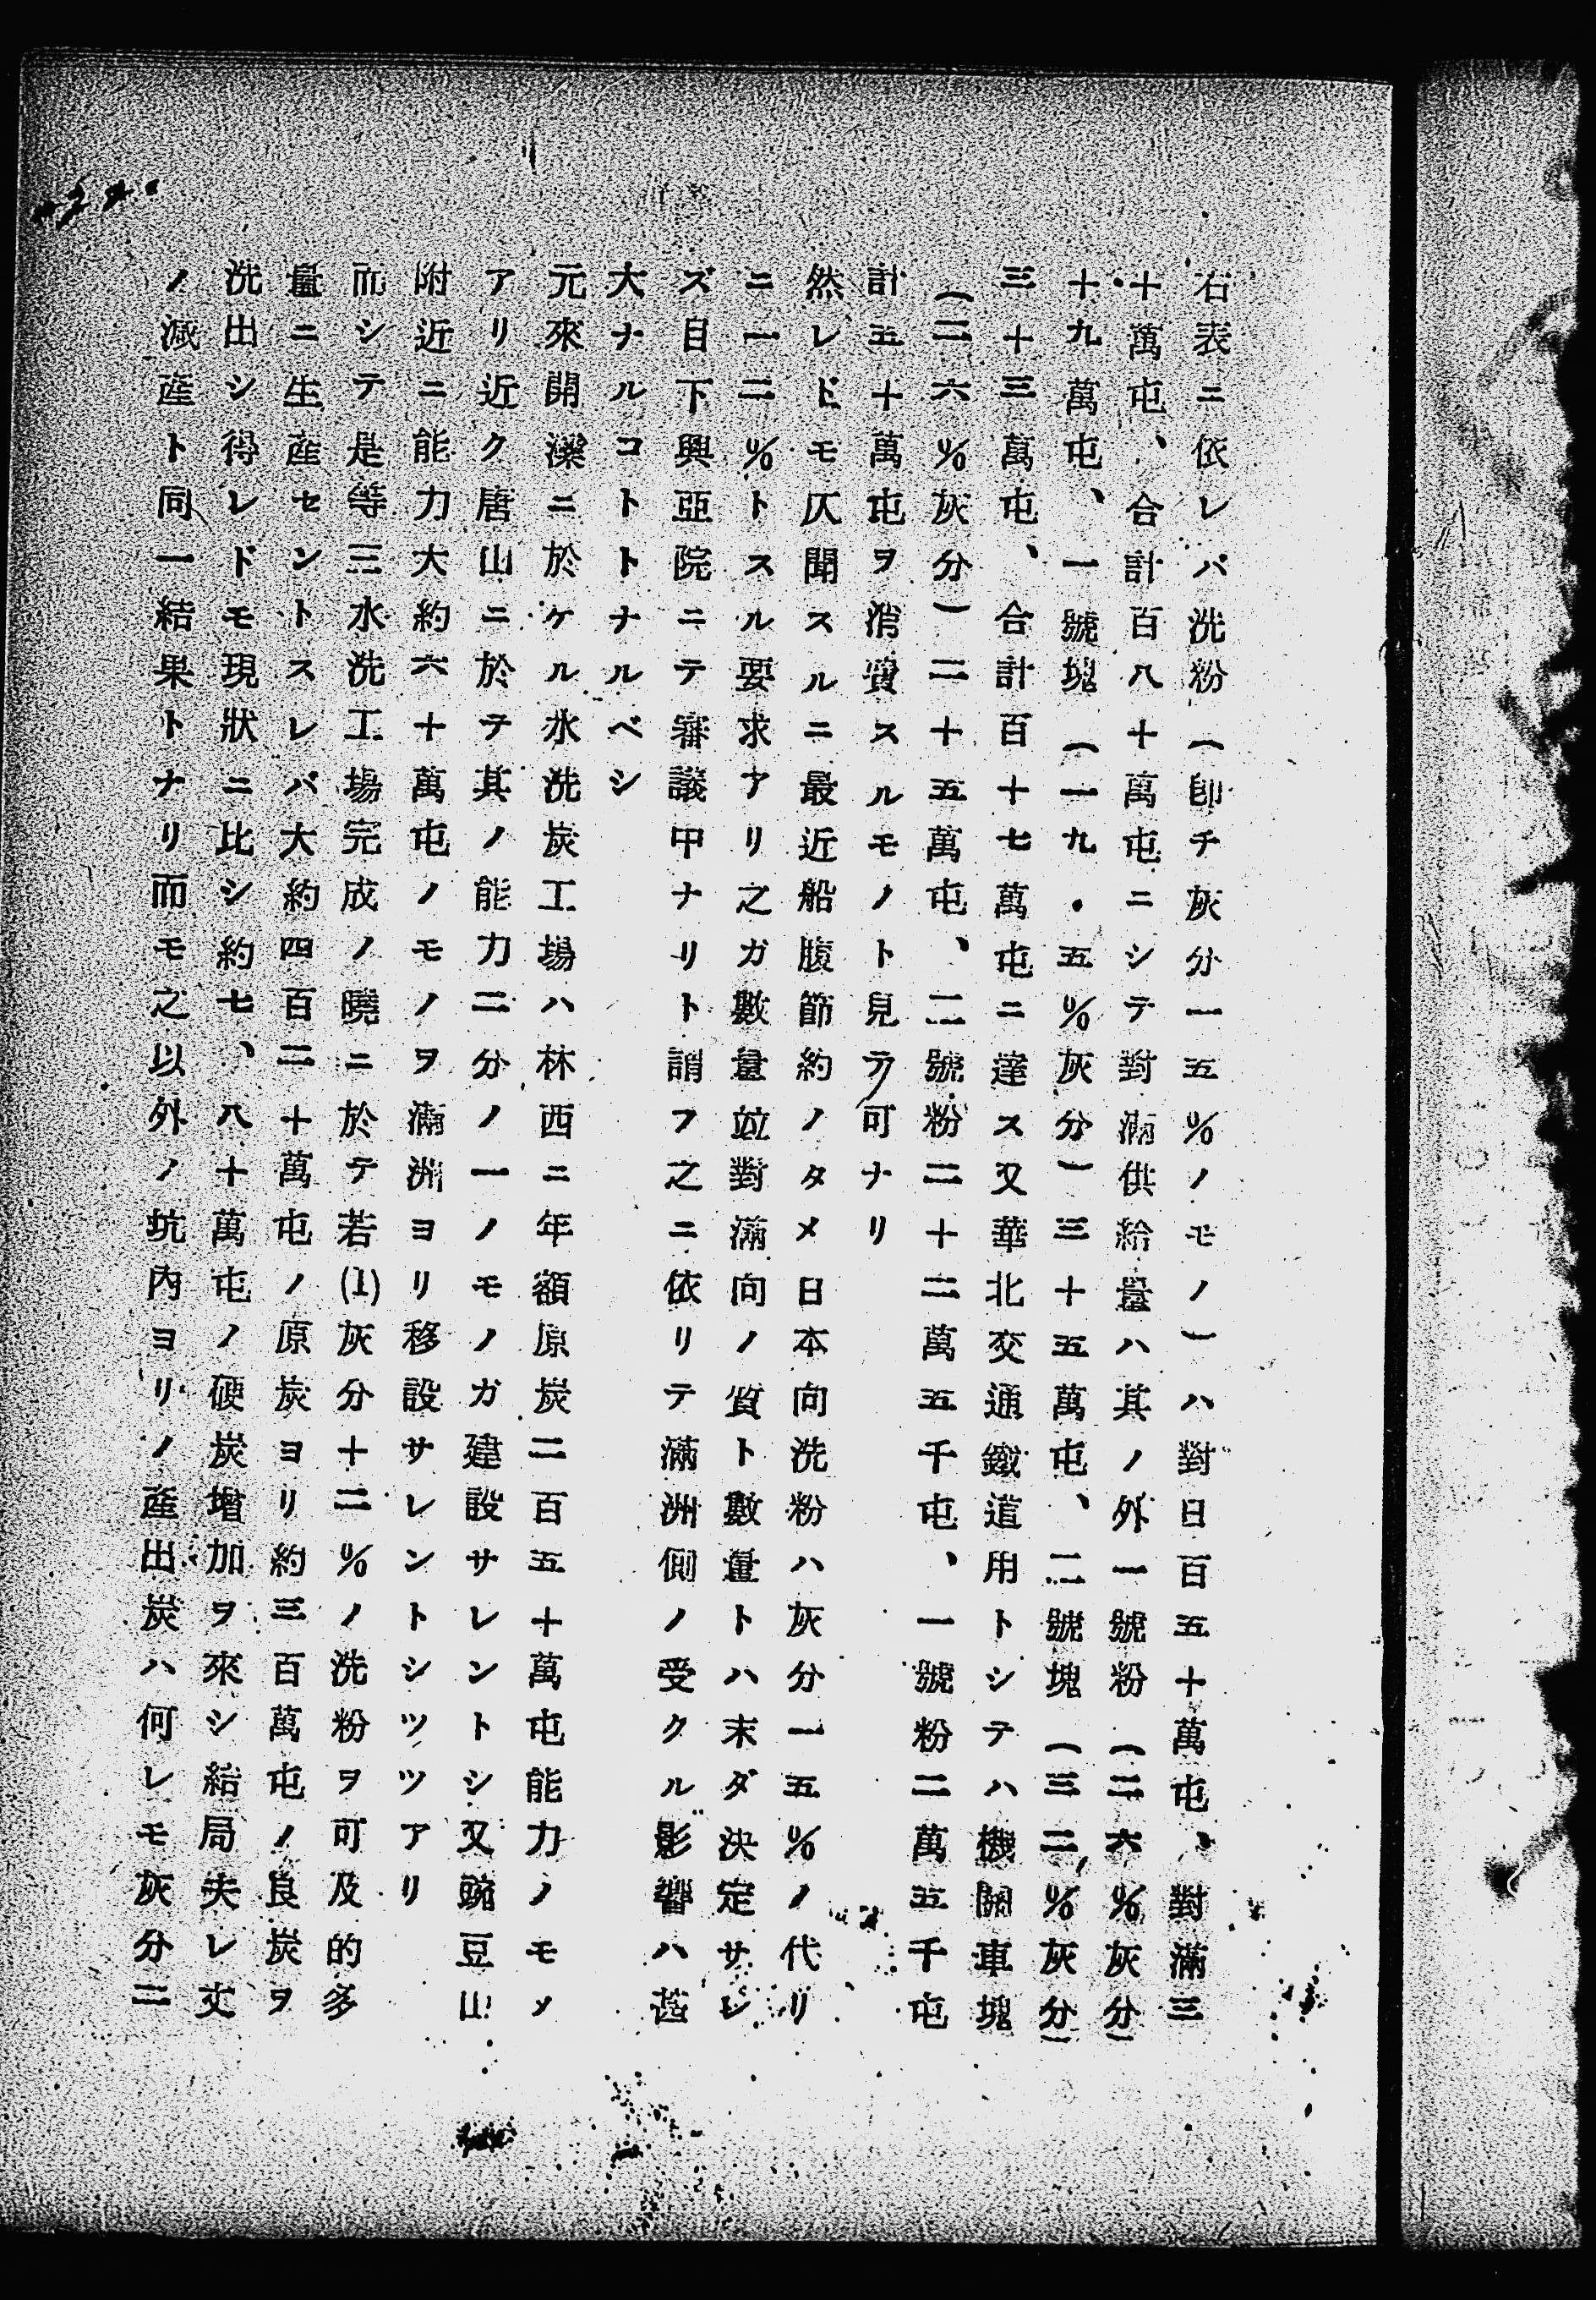 右表ニ依レバ洗粉（卽チ灰分一五％ノモノ）ハ對日百五十萬屯、對滿三
十萬屯、合計百八十萬屯ニシテ對滿供給量ハ其ノ外一號粉（二六％灰分）
十九萬屯、一號塊（一九・五％灰分）三十五萬屯、二號塊（三二％灰分）
三十三萬屯、合計百十七萬屯ニ達ス又華北交通鐵道用トシテハ機關車塊
（二六％灰分）二十五萬屯、二號粉二十二萬五千屯、一號粉二萬五千屯
計五十萬屯ヲ消費スルモノト見テ可ナリ
然レドモ仄聞スルニ最近船腹節約ノタメ日本向洗粉ハ灰分一五％ノ代リ
ニ一二％トスル要求アリ之ガ數量竝對滿向ノ質ト數量トハ末ダ決定サレ
ズ目下興亞院ニテ審議中ナリト謂フ之ニ依リテ滿洲側ノ受クル影響ハ甚
大ナルコトトナルベシ
元來開灤ニ於ケル水洗炭工場ハ林西ニ年額原炭二百五十萬屯能力ノモノ
アリ近ク唐山ニ於テ其ノ能力二分ノ一ノモノガ建設サレントシ又豌豆山
附近ニ能力大約六十萬屯ノモノヲ滿洲ヨリ移設サレントシツツアリ
而シテ是等三水洗工場完成ノ曉ニ於テ若(1)灰分十二％ノ洗粉ヲ可及的多
量ニ生産セントスレバ大約四百二十萬屯ノ原炭ヨリ約三百萬屯ノ良炭ヲ
洗出シ得レドモ現狀ニ比シ約七、八十萬屯ノ硬炭增加ヲ來シ結局夫レ丈
ノ減産ト同一結果トナリ而モ之以外ノ坑內ヨリノ産出炭ハ何レモ灰分二